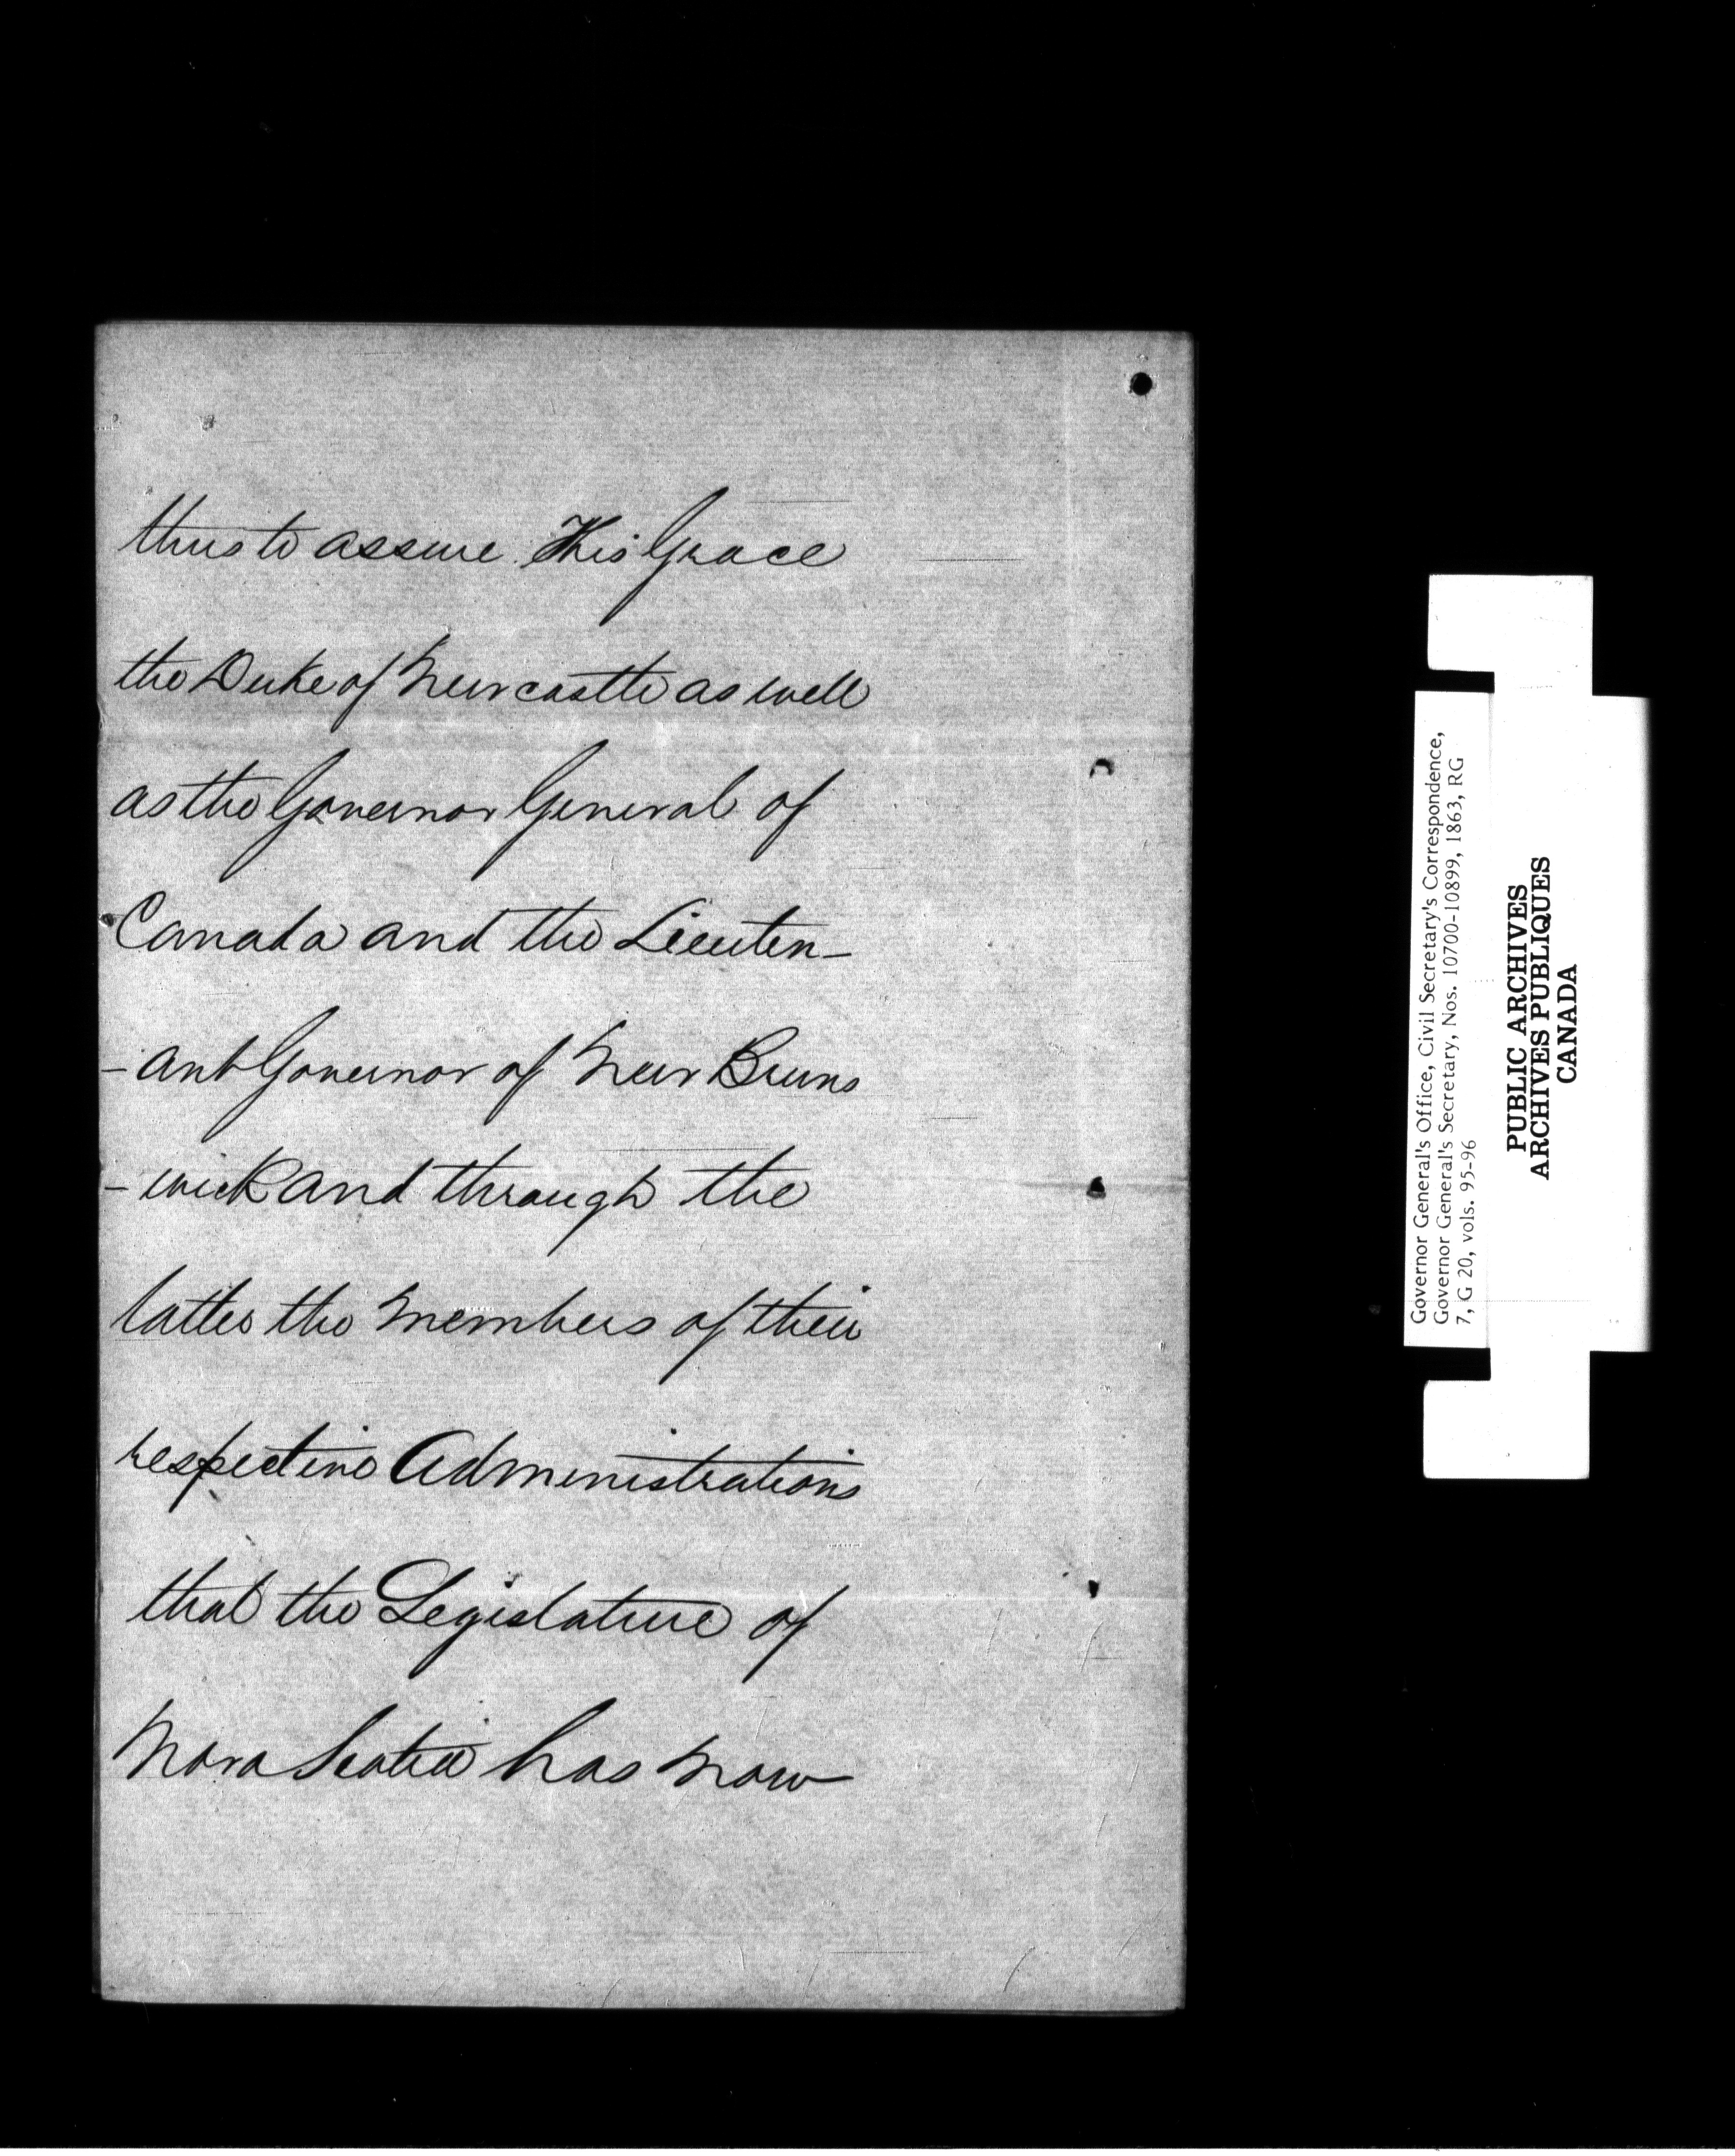 thus to assure His Grace
the Duke of Newcastle as well
as the Governor General of
Canada and the Lieuten-
-ant Governor of New Bruns
-wick and through the
latter the members of their
respective Administrations
that the Legislature of
Nova Scotia has now
Governor General's Office, Civil Secretary's Correspondence,
Governor General's Secretary, Nos. 10700-10899, 1863, RG
7, G 20, vols. 95-96
PUBLIC ARCHIVES
ARCHIVES PUBLIQUES
CANADA